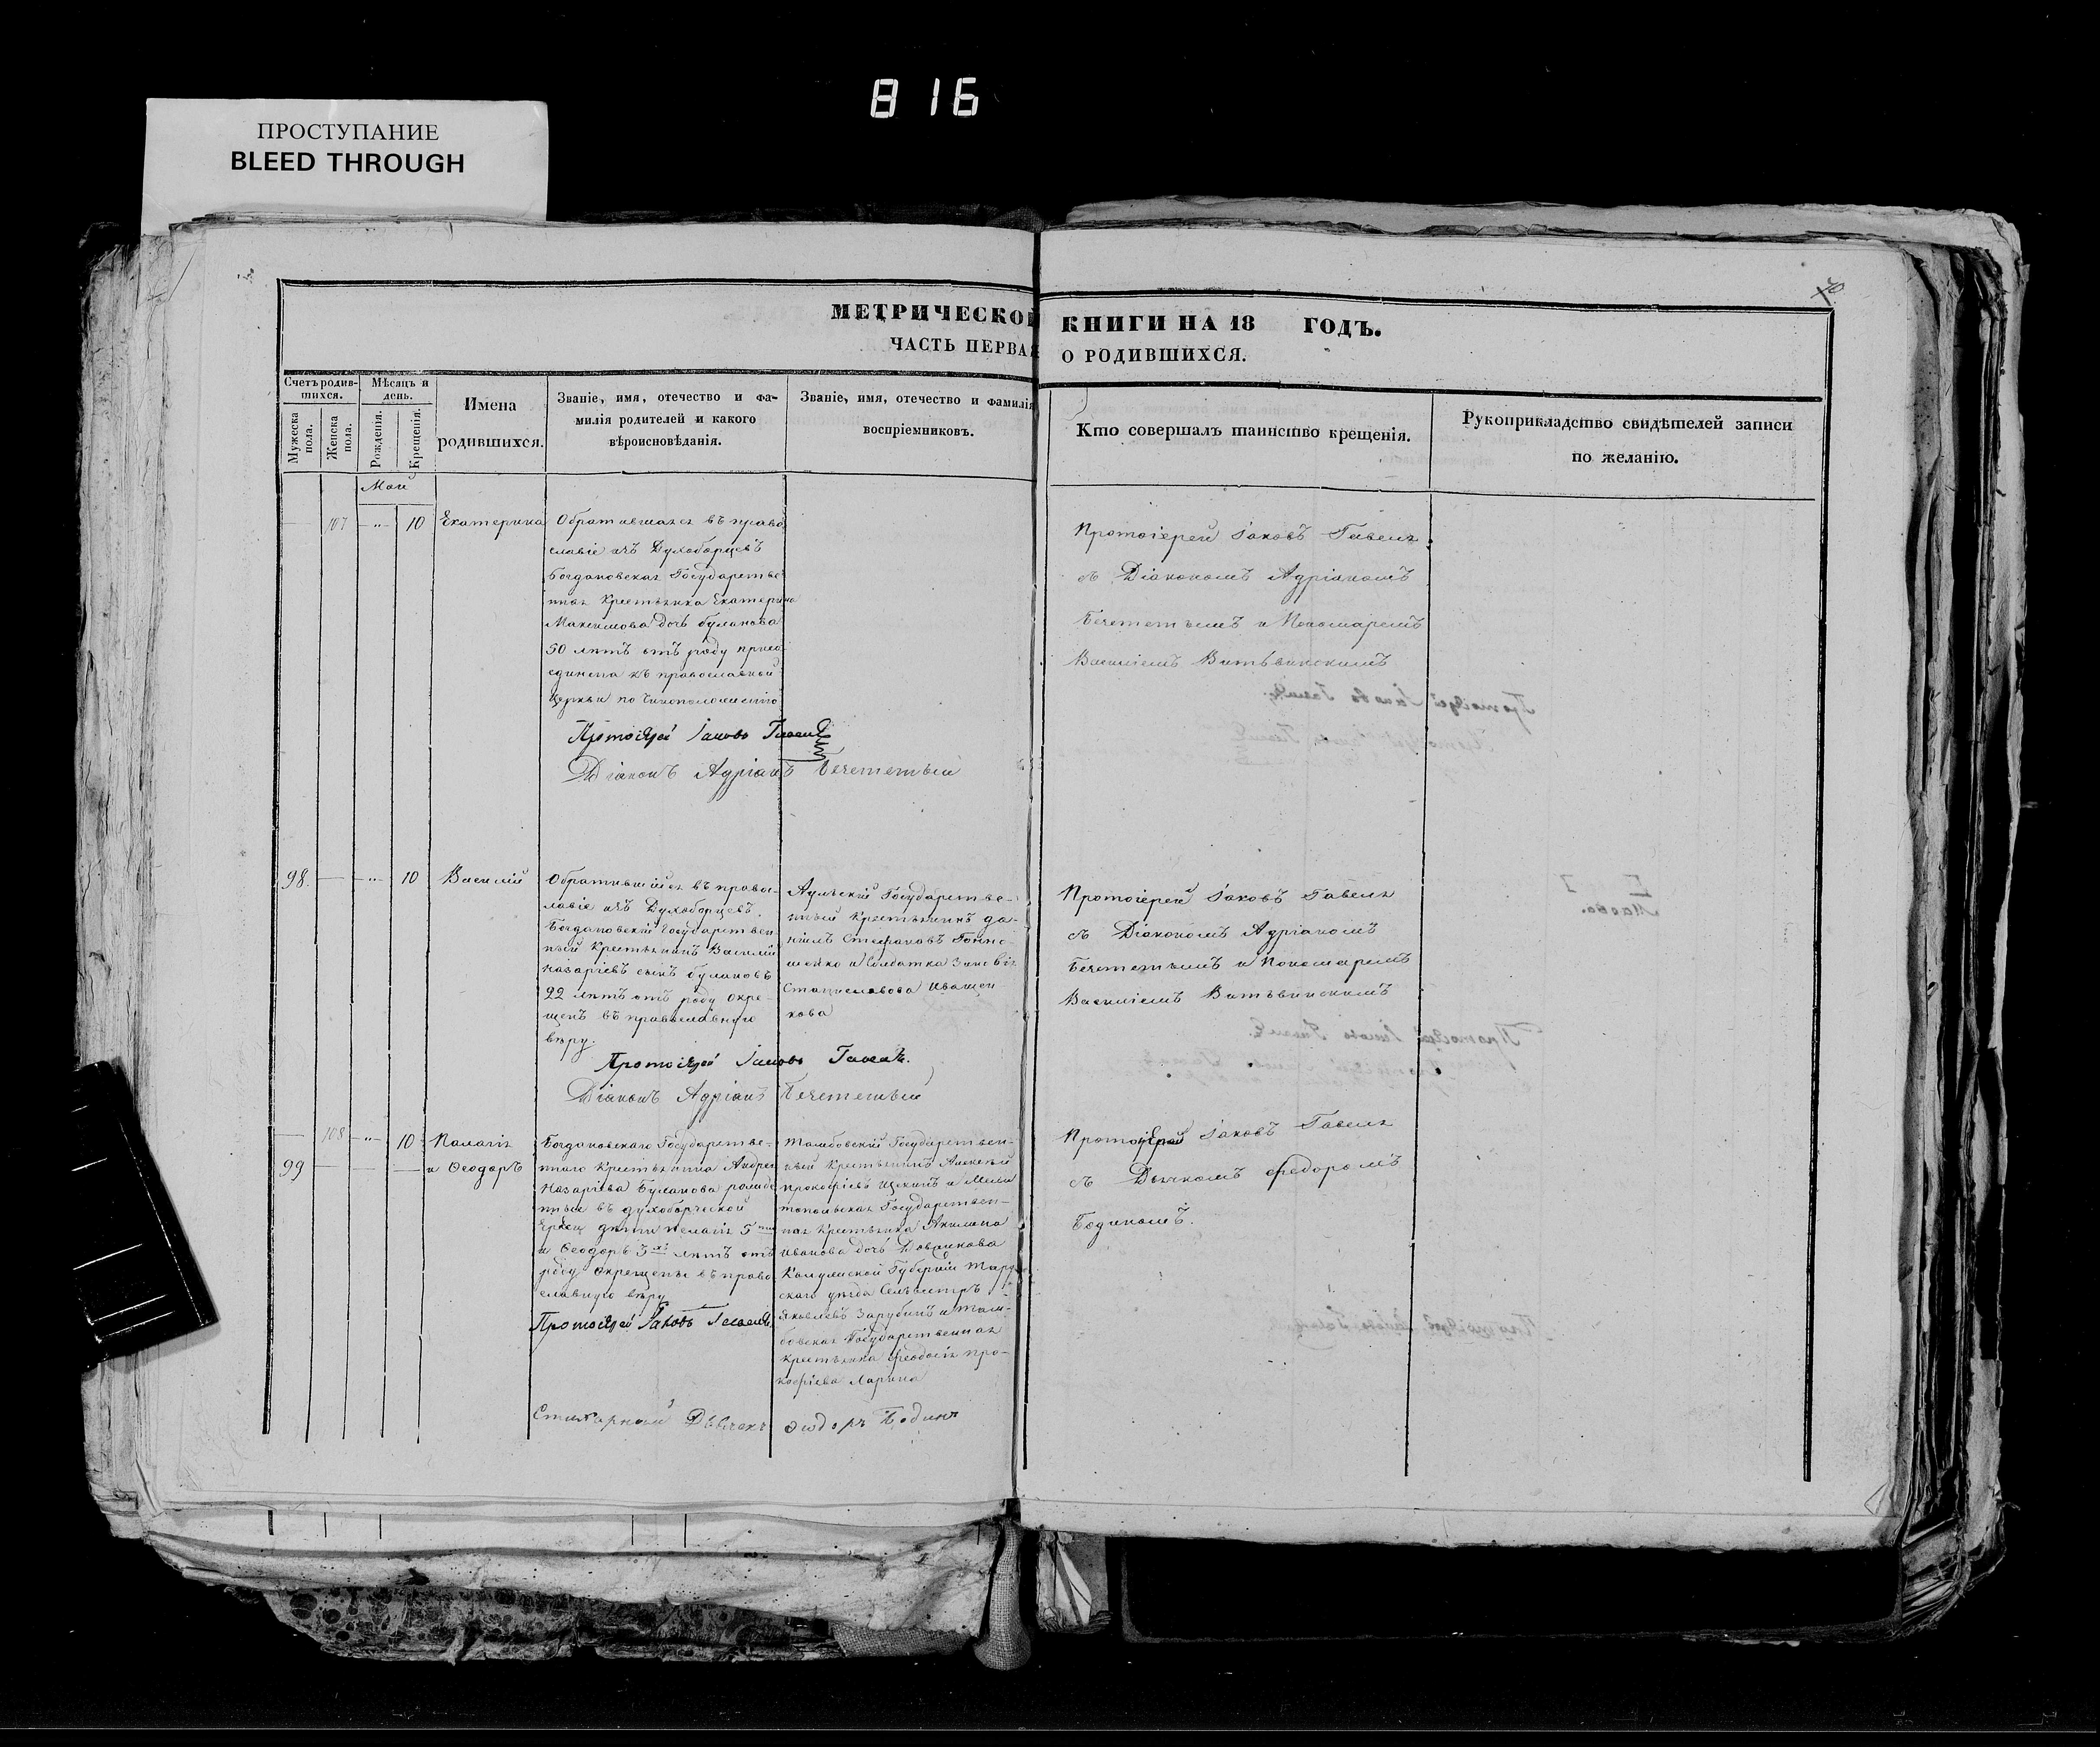 816
ПРОСТУПАНИЕ
BLEED THROUGH
70
МЕТРИЧЕСКОЙ КНИГИ НА 18 ГОДЪ.
ЧАСТЬ ПЕРВАЯ О РОДИВШИХСЯ.
Счетъ родив-
шихся.
Мужеска
пола.
Женска
пола.
Мѣсяцъ и
день.
Рожденія.
Крещенія.
Имена
родившихся.
Званіе, имя, отечество и фа-
милія родителей и какого
вѣроисновѣданія.
Званіе, имя, отечество и фамилія
воспріемниковъ.
Кто совершалъ таинство крещенія.
Рукоприкладство свидѣтелей записи
по желанію.
Май
107
10
Екатерина
Обратившаяся въ право
славіе изъ Духоборцевъ
Богдановская Государстве
нная Крестьянка Екатерина
Максимова дочь Буланова
50 лѣтъ отъ роду присо
единена къ православной
Церкви по Чиноположенію
Протоіерей Іаковъ
Діаконъ Адріанъ
Протоіерей Іаковъ
съ Діакономъ Адріаномъ
и Пономаремъ
Василіемъ
98.
10
Василій
Обратившійся въ право-
славіе изъ Духоборцевъ.
Богдановскій Государствен
ный Крестьянинъ Василій
Назаріевъ сынъ Булановъ
22 лѣтъ отъ роду окре-
щенъ въ православную
вѣру.
Протоіерей Іаковъ
Діаконъ Адріанъ
Государстве-
нный Крестьянинъ Да-
ніилъ Стефановъ
и Солдатка Зиновія
Станиславова Иващен
кова
Протоіерей Іаковъ
съ Діакономъ Адріаномъ
и Пономаремъ
Василіемъ
108
99
10
Палагія
и Ѳеодоръ
Богдановскаго Государстве-
ннаго Крестьянина Андрея
Назаріева Буланова рожде
нные въ духоборческой
дѣти Пелагія 5
и Ѳеодоръ 3 лѣтъ отъ
роду окрещены въ право
славную вѣру
Протоіерей Іаковъ
Тамбовскій Государствен-
ный Крестьянинъ Алексѣй
Прокофіевъ и Мели
топольская Государствен-
ная Крестьянка Акилина
Иванова дочь
Калужской Губерніи Тару
скаго уѣзда
Яковлевъ Зарубинъ и Там-
бовская Государственная
Крестьянка Феодосія Про-
кофіева Ларина
Протоіерей Іаковъ
съ Дьячкомъ Федоромъ
Бодиномъ.
Стихарный Дьячекъ Бодинъ